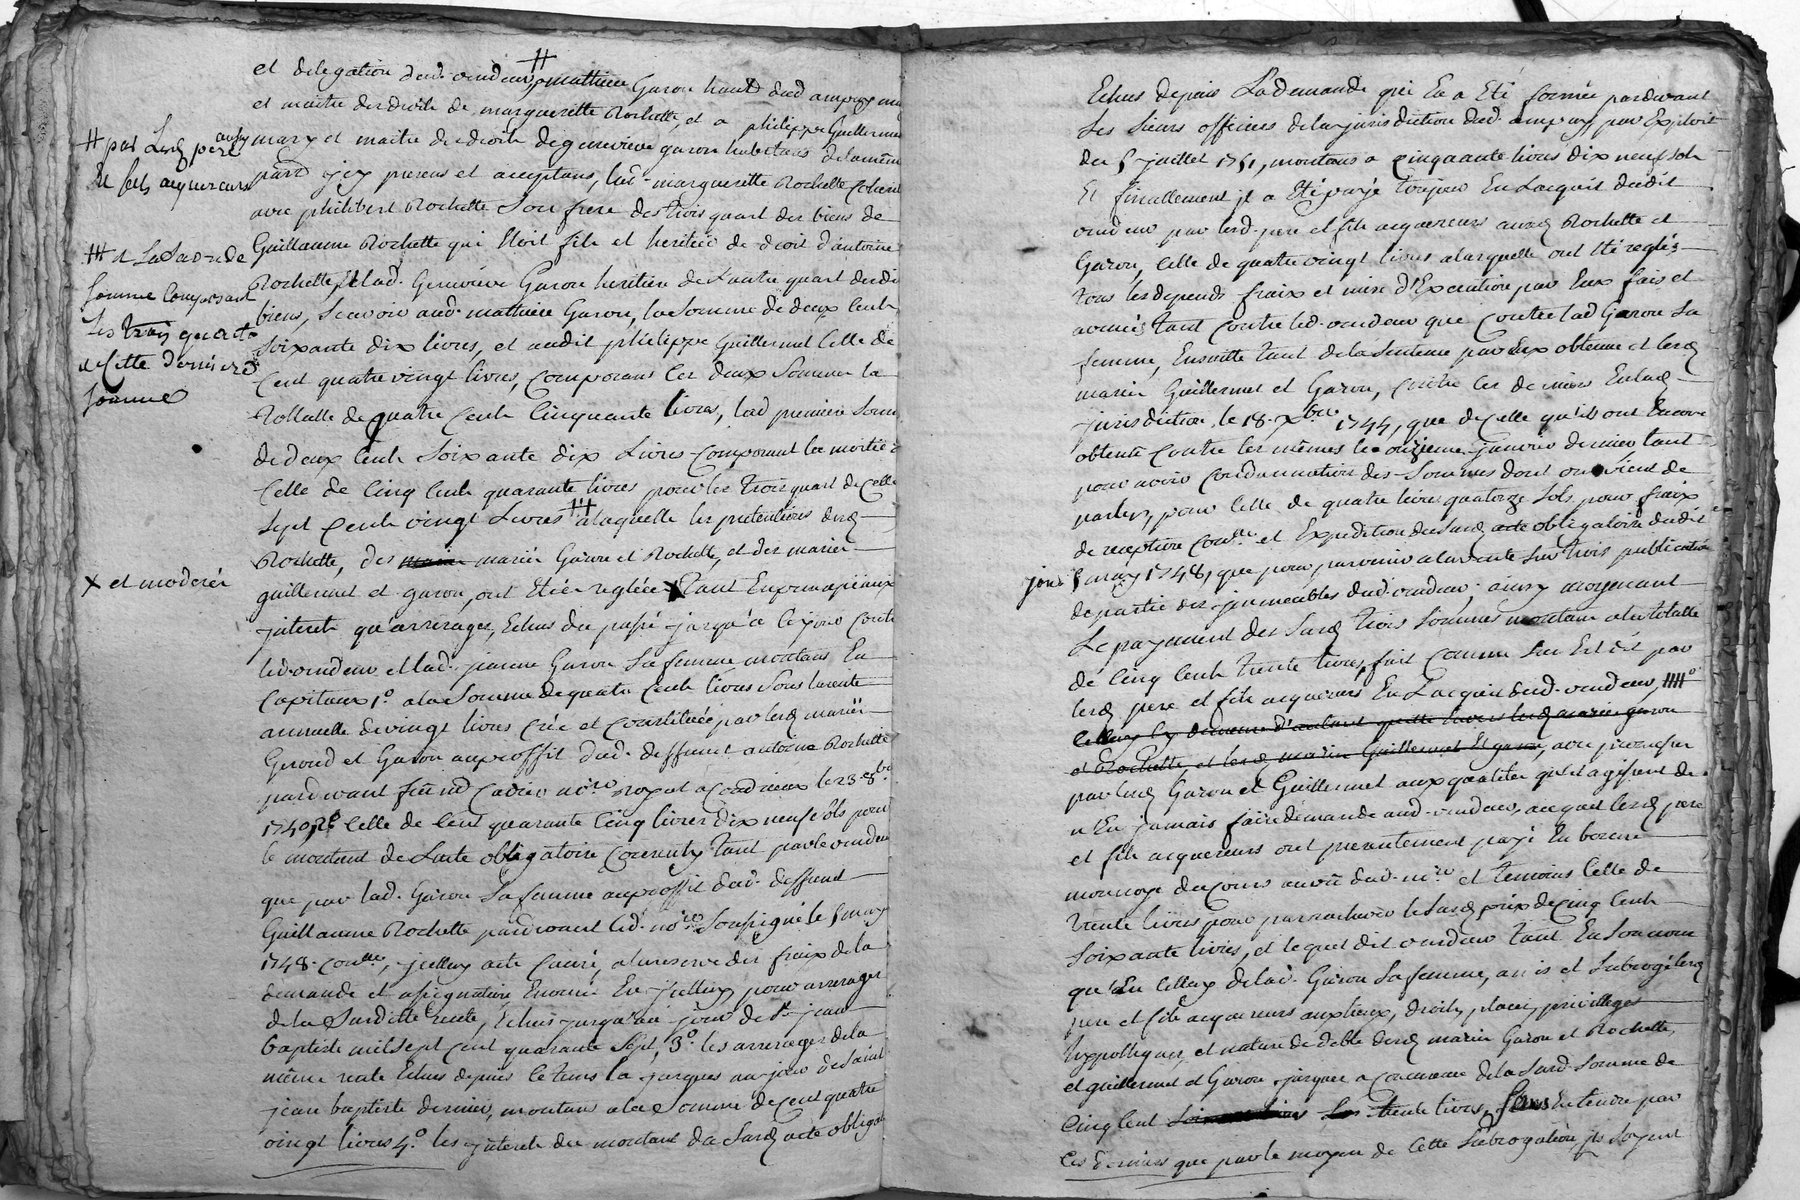 et delegation dud. vendeur ⧺ a mathieu Garon habt dud ampuy
et maitre des droits de margueritte Rochette, et a philippe Guillermet aussy
mary et maitre de droits de genevieve garon habitans
pard. icy presens et acceptans, lad. margueritte Rochette
avec philibert Rochette son frere des trois quart des biens de
Guillaume Rochette qui Etoit fils et heritier de droit d'antoine
Rochette, Et lad. Genevieve Garon heritiere de l'autre quart desdi
biens, Scavoir aud. mathieu Garon, la Somme de deux Cent
Soixante dix livres, et audit philippe Guillermet Celle de
Cent quatre vingt livres, Composans les deux Sommes la
Totalle de quatre Cent Cinquante livres, lad premiere Som
de deux Cent Soixante dix Livres Composant la moitié d
Celle de Cinq Cent quarante livres pour les trois quart de Celle
Sept Cent vingt Livres alaquelle les pretentions desd
Rochette, des mariés Garon et Rochette, et des mariés
guillermet et garon, ont Etées reglées X tant En principeaux
jnterets qu'arrerages, Echus du passé jusqu'à ce jour contre
led. vendeur et lad. jeanne Garon Sa femme montans En
Capitaux 1° a la Somme de quatre Cent livres Sous la rente
annuelle de vingt livres Créé et Constituée par lesd mariés
Giroud et Garon au proffit dud. deffunt antoine Rochette
pardevant not.re royal a Condrieux le 23 8bre
1740, 2° Celle de Cent quarante Cinq livres dix neuf Sols pour
le montant de l'acte obligatoire Consenty tant par le vendeur
que par lad. Garon Sa femme au proffit dud. deffunt
Guillaume Rochette pardevant led. no.re Soussigné le 5 may
1748. Con.llé, jcelluy acte Causé, a la reserve des fraix de la
demande et assignation Enoncé En jcelluy, pour arrerages
de la Sudditte rente, Echus jusqu'au jour de St jean
baptiste mil sept cent quarante Sept, 3° les arrerages de la
même rente Echus depuis ce tems la jusques au jour de Saint
jean baptiste dernier, montans a la Somme de Cent quatre
vingt livres 4° les jnterets du montant du Susd acte obligat
⧺ par Lesd pere
Et fils acquereurs
⧻ et La Sadde
Somme Composant
Les trois quarts
de Cette derniere
Somme
X et moderés
Echus depuis La demande qui En a Eté formée pardevant
Les Sieurs officiers de la jurisdiction dud. ampuy, par Exploit
du 5 juillet 1751, montans a Cinquante livres dix neuf Sols
Et finallement jl a Eté payé toujour En l'acquit dudit
vendeur par lesd. pere et fils acquereurs auxd Rochette et
Garon, Celle de quatre vingt livres a laquelle ont Eté reglés
tous les depends fraix et mise d'Execution par Eux fais et
avancés tant Contre led. vendeur que Contre lad Garon Sa
femme, Ensuitte tant de la Sentence par Eux obtenue et lesd
mariés Guillermet et Garon, contre les derniers En lad
jurisdiction, le 18. Xbre 1744, que de Celle qu'ils ont Encore
obtenu Contre les mêmes le onzieme janvier dernier tant
pour avoir Condamnation des Sommes dont on vient de
parler, pour Celle de quatre livres quatorze Sols pour fraix
de reception Con.lle et Expedition du Susd acte obligatoire dudit
jour 5 may 1748, que pour parvenir a la vente Sur trois publication
de partie des jmmeubles dud. vendeur, ainsy moyenant
Le payement des Susd trois Sommes montans a la totalle
de Cinq Cent trente livres, fait Comme Sus Est dit par
lesd pere et fils acquereurs En l'acquit dud. vendeur, ⧻°
et Rochette, et lesd mariés Guillermet Et garon, avec promesse
par lesd Garon et Guillermet aux qualités qu'il agissent de
n'En jamais faire demande aud. vendeur, auquel lesd pere
et fils acquereurs ont presentement payé En bonne
monnoye de Cours au vû dud. no.re et temoins Celle de
trente livres pour parrachever le Susd prix de Cinq Cent
Soixante livres, et lequel dit vendeur tant En Son nom
qu'En Celluy de lad. Garon Sa femme, a mis et Subrogé lesd
pere et fils acquereurs aux lieux, droits, places, privilleges
hyppotheques, et nature de debte desd mariés Garon et Rochette
et guillermet et Garon jusques a Concurance de la Susd. Somme de
Cinq Cent trente livres, Sans Entendre par
Ces derniers que par le moyen de Cette Subrogation, jls Soyent